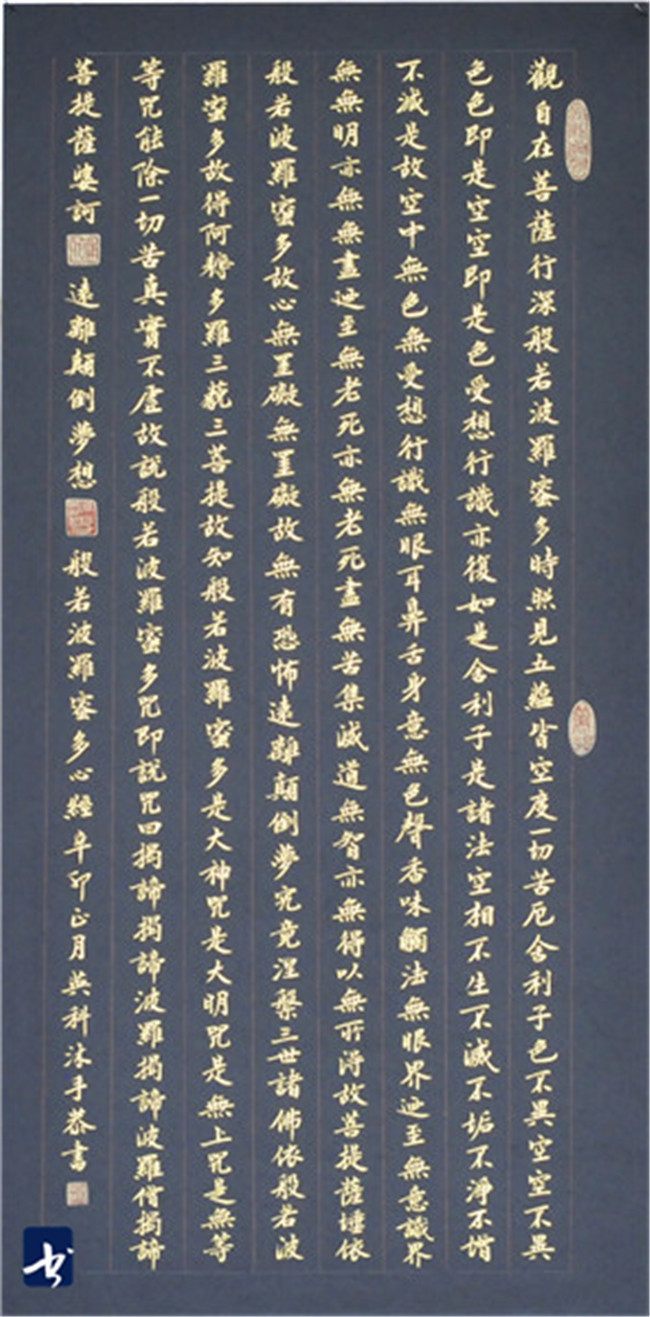 觀自在菩薩行深般若波羅蜜多時照見五蘊皆空度一切苦厄舍利子色不異空空不異
色色即是空空即是色受想行識亦復如是舍利子是諸法空相不生不滅不垢不淨不增
不減是故空中無色無受想行識無眼耳鼻舌身意無色聲香味觸法無眼界廼至無意識界
無無明亦無無盡廼至無老死亦無老死盡無苦集滅道無智亦無得以無所得故菩提薩埵依
般若波羅蜜多故心無罣礙無罣礙故無有恐怖遠離顛倒夢究竟涅槃三世諸佛依般若波
羅蜜多故得阿耨多羅三藐三菩提故知般若波羅蜜多是大神咒是大明咒是無上咒是無等
等咒能除一切苦真實不虛故說般若波羅蜜多咒即說咒曰揭諦揭諦波羅揭諦波羅僧揭諦
菩提薩婆訶 遠離顛倒夢想 般若波羅蜜多心經辛卯正月英科沐手恭書
书